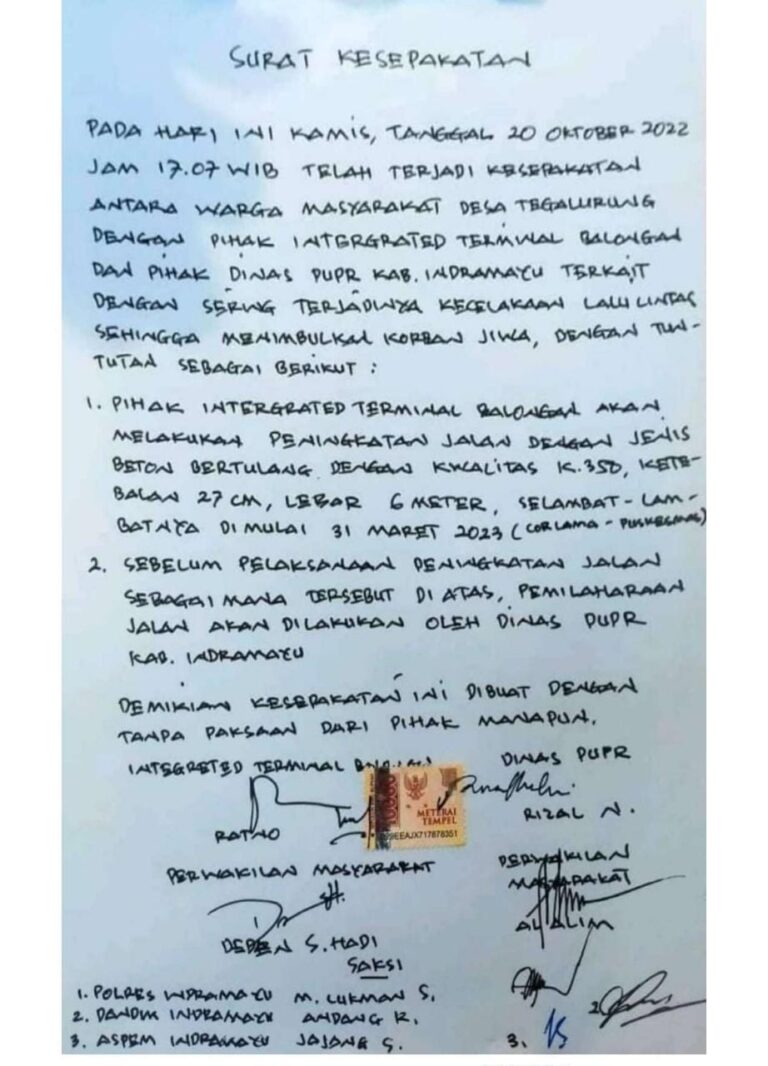 SURAT KESEPAKATAN
PADA HARI INI KAMIS, TANGGAL 20 OKTOBER 2022
JAM 17.07 WIB TELAH TERJADI KESEPAKATAN
ANTARA WARGA MASYARAKAT DESA TEGALURUNG
DENGAN PIHAK INTERGRATED TERMINAL BALONGAN
DAN PIHAK DINAS PUPR KAB. INDRAMAYU TERKAIT
DENGAN SERING TERJADINYA KECELAKAAN LALU LINTAS
SEHINGGA MENIMBULKAN KORBAN JIWA, DENGAN TUN-
TUTAN SEBAGAI BERIKUT :
1. PIHAK INTERGRATED TERMINAL BALONGAN AKAN
MELAKUKAN PENINGKATAN JALAN DENGAN JENIS
BETON BERTULANG DENGAN KWALITAS K.350, KETE-
BALAN 27 CM, LEBAR 6 METER, SELAMBAT-LAM-
BATNYA DI MULAI 31 MARET 2023 (COR LAMA - PUSKESMAS)
2. SEBELUM PELAKSANAAN PENINGKATAN JALAN
SEBAGAI MANA TERSEBUT DI ATAS, PEMILAHARAAN
JALAN AKAN DILAKUKAN OLEH DINAS PUPR
KAB. INDRAMAYU
DEMIKIAN KESEPAKATAN INI DIBUAT DENGAN
TANPA PAKSAAN DARI PIHAK MANAPUN.
INTEGRETED TERMINAL
DINAS PUPR
10000
METERAI
TEMPEL
RATNO
RIZAL N.
PERWAKILAN MASYARAKAT
PERWAKILAN
MASYARAKAT
DEDEN S. HADI
AL ALIM
SAKSI
1. POLRES INDRAMAYU M. LUKMAN S.
2. DANDIM INDRAMAYU ANDANG R. 2
3. ASPEM INDRAMAYU JAJANG S. 3.